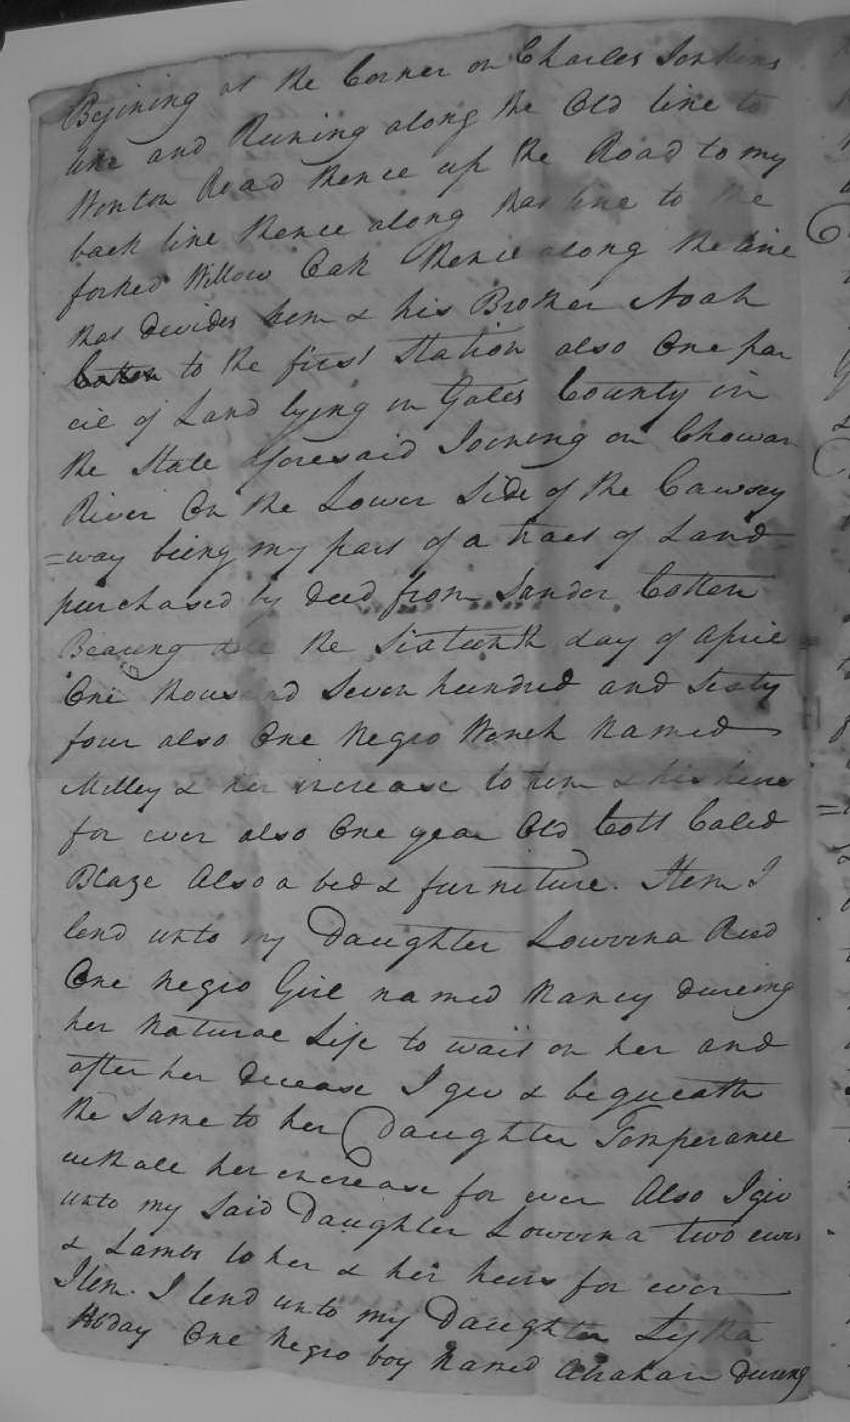 Begining at the Corner on Charles Jenkins
line and Runing along the Old line to
Wonton Road thence up the Road to my
back line thence along that line to the
forked Willow Oak thence along the line
that devides him & his Brother Noah
Cotton to the first Station also One par
cil of Land lying in Gates County in
the State aforesaid Joining on Chowan
River On the Lower Side of the Cawsey
=way being my part of a tract of Land
purchased by deed from Sander Cotten
Bearing date the Sixteenth day of April
One thousand Seven hundred and Sixty
four also One Negro Wench Named
Milley & her increase to him & his heirs
for ever also One year Old Colt Caled
Blaze Also a bed & furniture. Item I
lend unto my Daughter Lowvina Reed
One Negro Girl named Nancy dureing
her Natural Life to wait on her and
after her decease I giv & bequeath
the Same to her Daughter Temperance
with all her increase for ever Also I giv
unto my Said Daughter Lowvina two ews
& Lambs to her & her heirs for ever
Item. I lend unto my Daughter Lytha
One Negro boy Named Abraham during